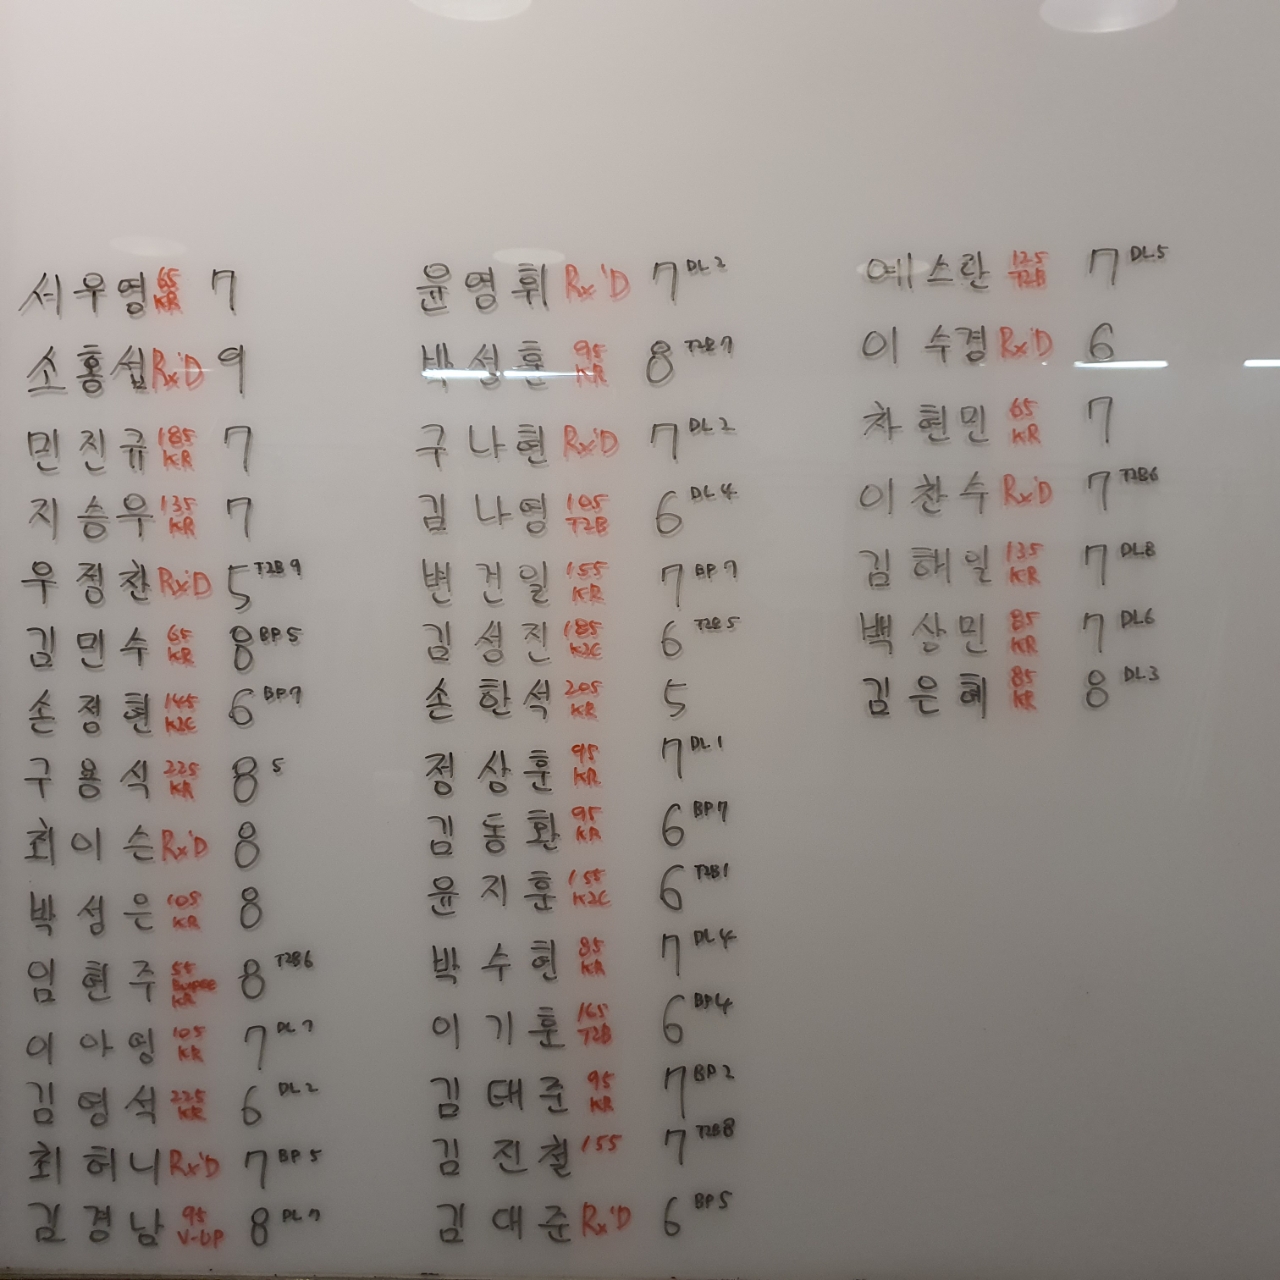 서우영 65 KR 7
소홍섭 Rx'D 9
민진규 185 KR 7
지승우 135 KR 7
우정찬 Rx'D 5 T2B 9
김민수 65 KR 8 BP 5
손정현 145 K2C 6 BP 7
구용석 225 KR 8 5
최이슨 Rx'D 8
박성은 105 KR 8
임현주 55 KR 8 T2B 6
이아영 105 KR 7 DL 7
김영석 225 KR 6 DL 2
최허니 Rx'D 7 BP 5
김경남 95 V-UP 8 DL 7
윤영휘 Rx'D 7 DL 2
박성훈 95 KR 8 T2B 7
구나현 Rx'D 7 DL 2
김나영 105 T2B 6 DL 4
변건일 155 KR 7 BP 7
김성진 185 K2C 6 T2B 5
손한석 205 KR 5
정상훈 95 KR 7 DL 1
김동환 95 KR 6 BP 7
윤지훈 155 K2C 6 T2B 1
박수현 85 KR 7 DL 4
이기훈 165 T2B 6 BP 4
김태준 95 KR 7 BP 2
김진철 155 7 T2B 8
김대준 Rx'D 6 BP 5
예스란 125 T2B 7 DL 5
이수경 Rx'D 6
차현민 65 KR 7
이찬수 Rx'D 7 T2B 6
김해일 135 KR 7 DL 8
백상민 85 KR 7 DL 6
김은혜 85 KR 8 DL 3